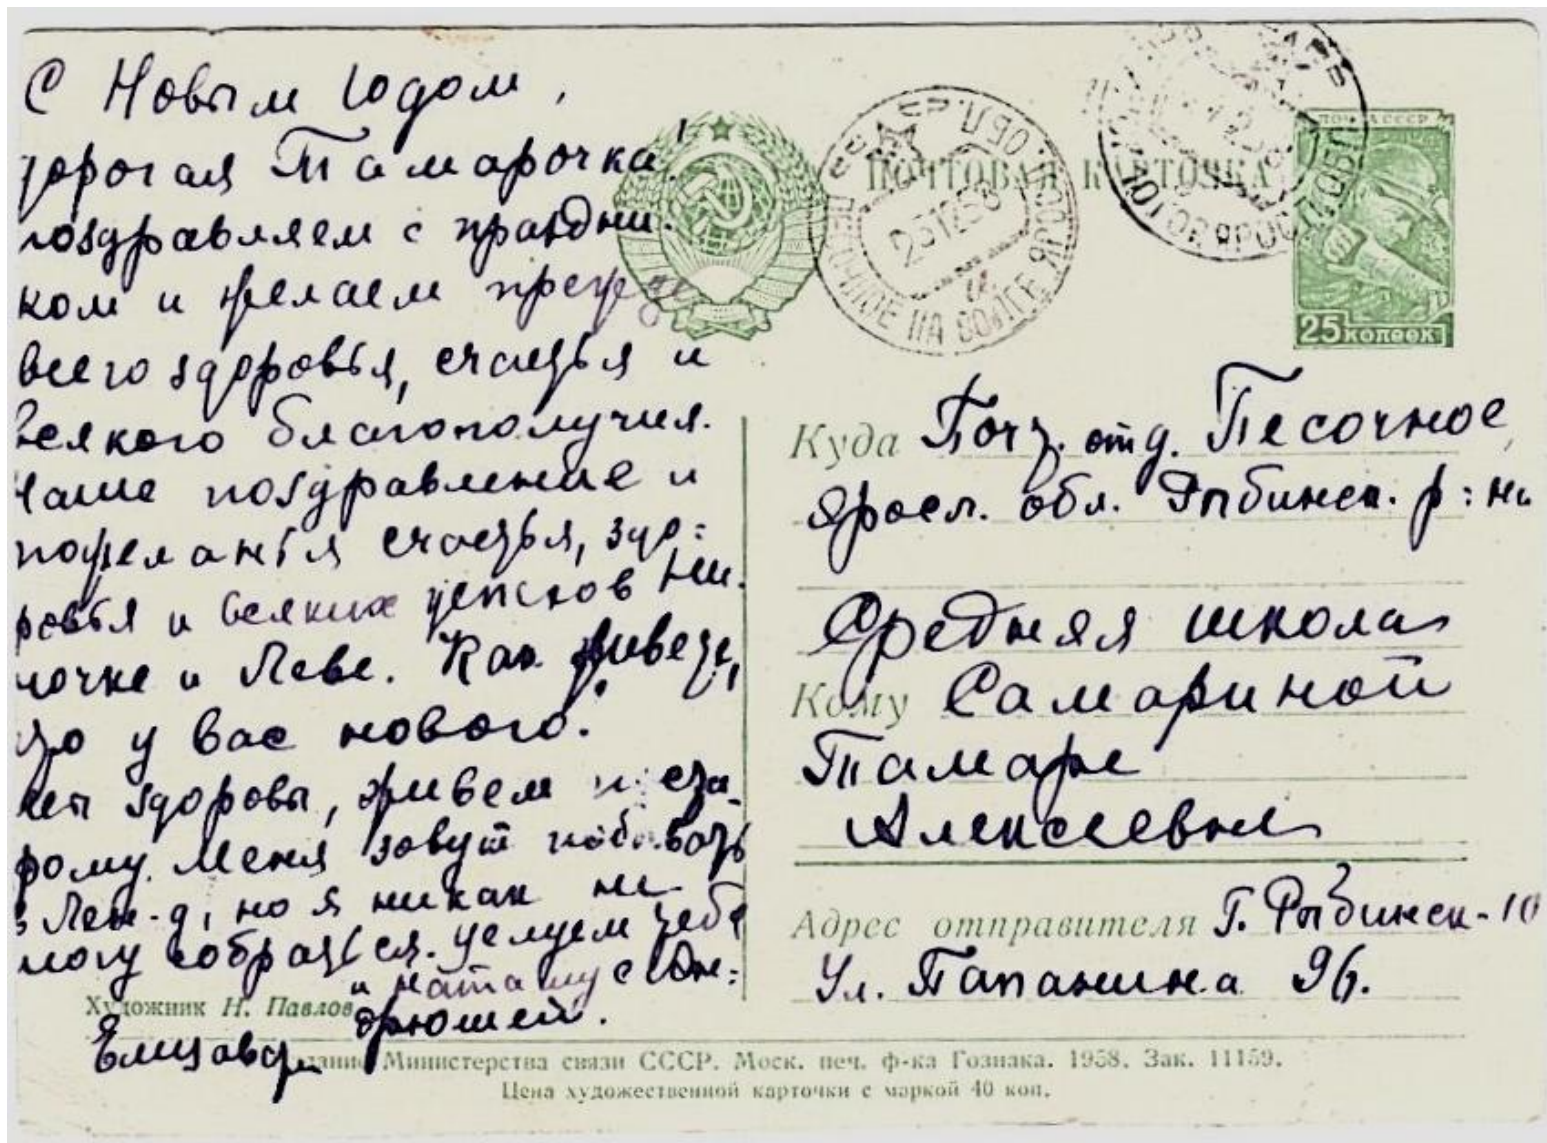 С Новым годом,
дорогая Тамарочка!
поздравляем с праздни-
ком и желаем прежде
всего здоровья, счастья и
всякого благополучия.
Наше поздравление и
пожеланья счастья, здо=
ровья и всяких успехов Ни-
ночке и Леве. Как живете,
что у вас нового.
здоровы, живем по ста-
рому. Меня зовут побывать
в Лен-д, но я никак не
могу собраться. Целуем тебя
и Наташу с Ан=
дрюшей.
Елизавет
ПОЧТОВАЯ КАРТОЧКА
ПОЧТА СССР
25 КОПЕЕК
ПЕСОЧНОЕ НА ВОЛГЕ ЯРОСЛ. ОБЛ.
251258
Куда Почт. отд. Песочное,
Яросл. обл. Рыбинск. р=н
Средняя школа
Кому Самариной
Тамаре
Алексеевне
Адрес отправителя г. Рыбинск-10
Ул. Папанина 96.
Художник Н. Павлов
Издание Министерства связи СССР. Моск. печ. ф-ка Гознака. 1958. Зак. 11159.
Цена художественной карточки с маркой 40 коп.